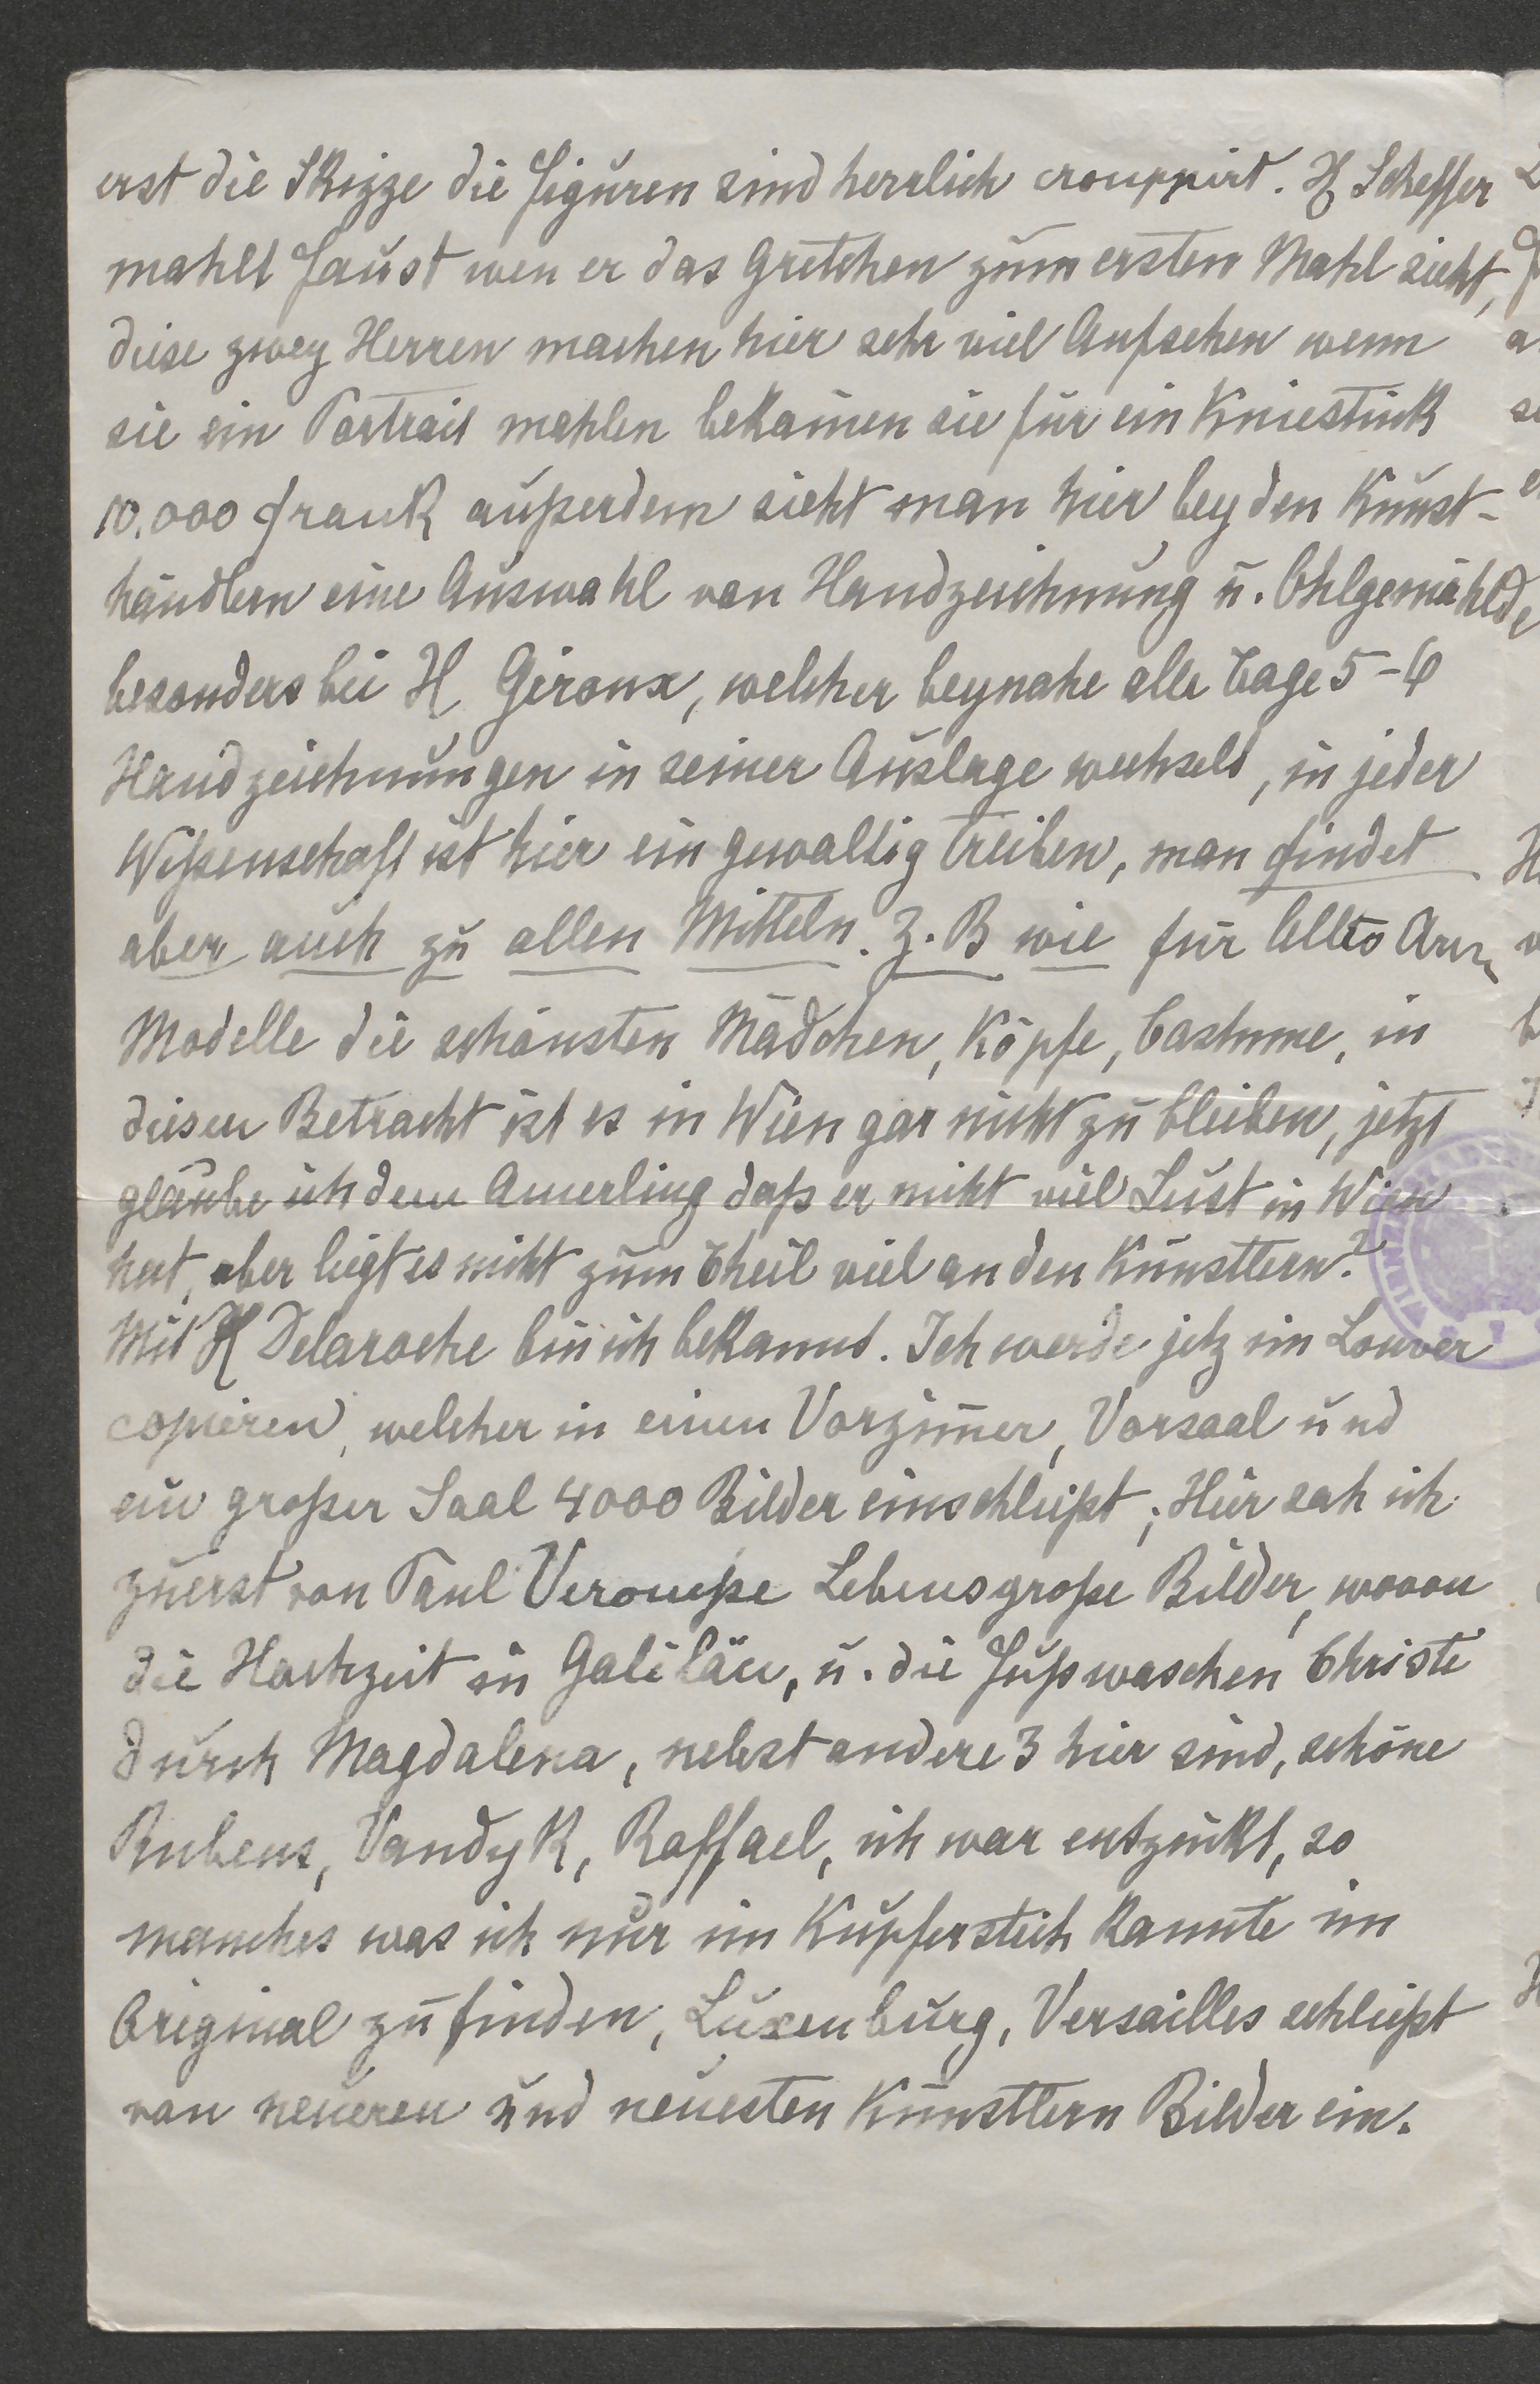 erst die Skizze die Figuren sind herrlich crouppirt. H Scheffer
mahlt Faust wen er das Gretchen zum ersten Mahl sieht,
diese zwey Herren machen hier sehr viel Aufsehen wenn
sie ein Portrait mahlen bekamen sie für ein Kniestück
10.000 Frank außerdem sieht man hier bey den Kunst-
händlern eine Auswahl von Handzeichnung u. Öhlgemählde
besonders bei H. Giroux, welcher beynahe alle Tage 5-6
Handzeichnungen in seiner Auslage wechselt, in jeder
Wißenschaft ist hier ein gewaltig treiben, man findet
aber auch zu allen Mitteln. Z. B wie für
Modelle die schönsten Mädchen, Köpfe, Costume, in
diesen Betracht ist es in Wien gar nicht zu bleiben, jetzt
glaube ich dem Amerling daß er nicht viel Lust in Wien
hat, aber liegt es nicht zum Theil viel an den Künstlern?
Mit H Delaroche bin ich bekannt. Ich werde jetz im Louver
copieren, welcher in einen Vorzimer, Vorsaal und
ein großer Saal 4000 Bilder einschließt; Hier sah ich
zuerst von Paul Veronese Lebensgroße Bilder, wovon
die Hochzeit in Galiläa, u. die Fußwaschen Christi
durch Magdalena, nebst andere 3 hier sind, schöne
Rubens, Vandyk, Raffael, ich war entzückt, so
manches was ich nur im Kupferstich kannte im
Original zu finden, Luxenburg, Versailles schließt
von neueren und neuesten Künstlern Bilder ein.